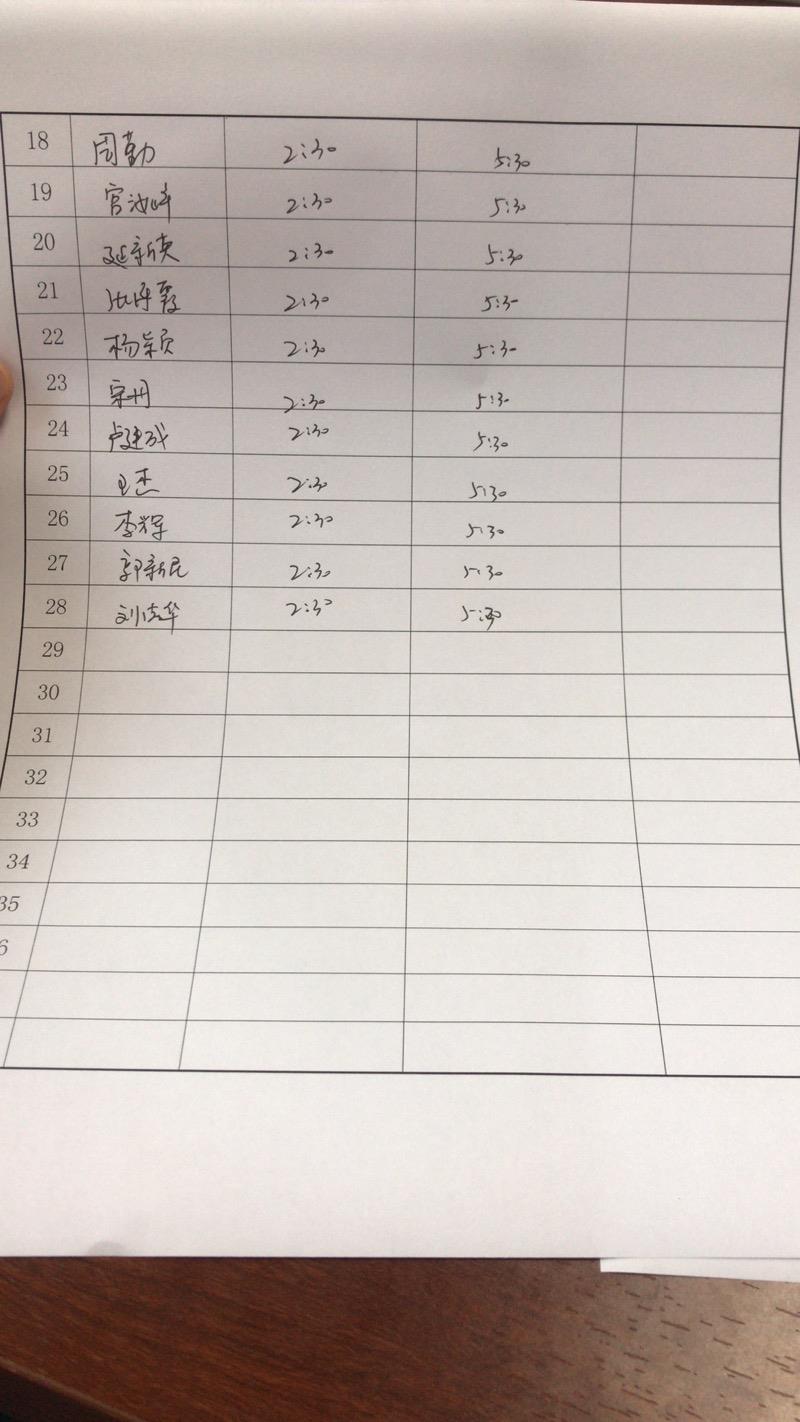 18 周勤 2:30 5:30
19 宫汝峰 2:30 5:30
20 延新爽 2:30 5:30
21 沈海霞 2:30 5:30
22 杨颖 2:30 5:30
23 宋丹 2:30 5:30
24 卢建成 2:30 5:30
25 王杰 2:30 5:30
26 李辉 2:30 5:30
27 郭新民 2:30 5:30
28 刘志华 2:30 5:30
29
30
31
32
33
34
35
6